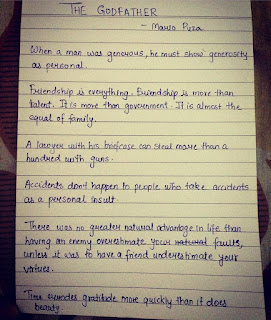 THE GODFATHER
- Mario Puzo
When a man was generous, he must show generosity
as personal.
Friendship is everything. Friendship is more than
talent. It is more than government. It is almost the
equal of family.
A lawyer with his briefcase can steal more than a
hundred with guns.
Accidents don't happen to people who take accidents
as a personal insult.
-There was no greater natural advantage in life than
having an enemy overestimate your faults,
unless it was to have a friend underestimate your
virtues.
-Time erodes gratitude more quickly than it does
beauty.